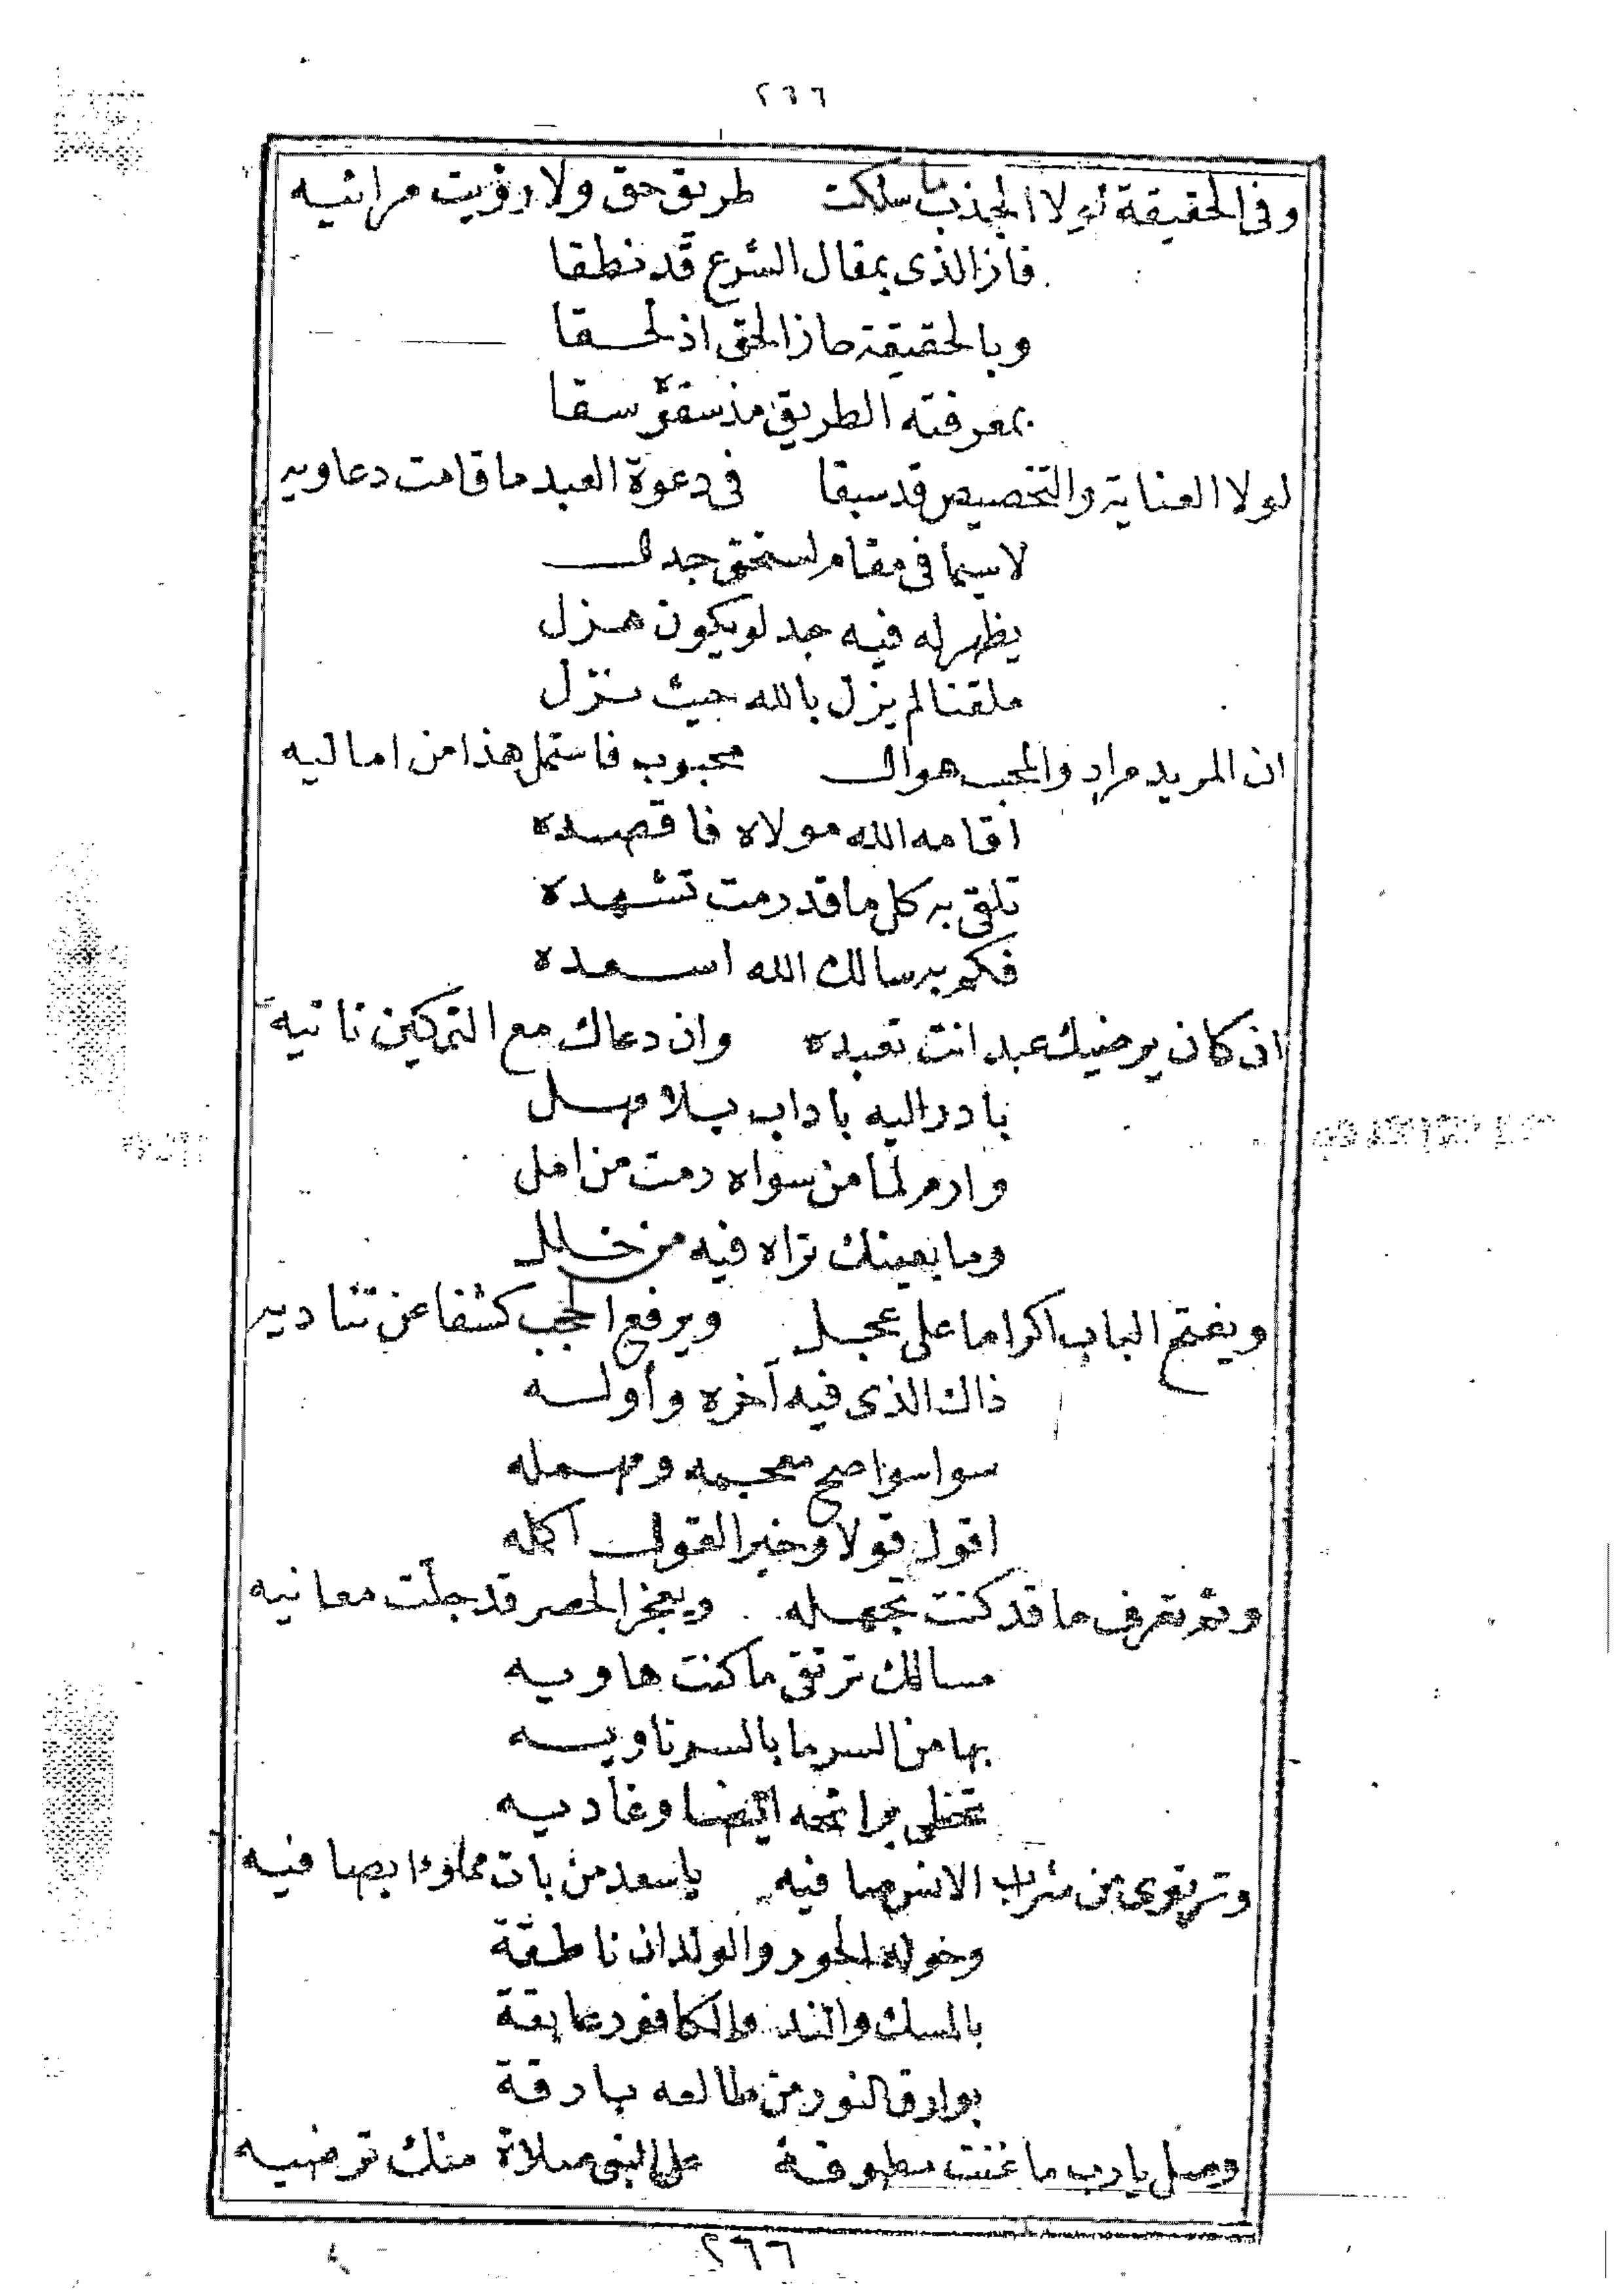 ٢٦٦
وفي الحقيقة لولا الجذب ما سلكت طريق حق ولا رؤيت مرائيه
فاز الذى بمقال الشرع قد نطقا
وبالحقيقة حاز الحق اذ لحقا
بمعرفته الطريق مذ سقوه سقا
لولا العناية والتخصيص قد سبقا فى دعوة العبد ما قامت دعاويه
لاسيما فى مقام يستحق جدل
يظهر له فيه جد لو يكون هزل
ملقنا لم يزل بالله حيث نزل
ان المريد مراد والمحب هوال محبوب فاستمل هذا من اماليه
اقامه الله مولاه فاقصده
تلقى به كل ما قد رمت تشهده
فكم به سالك الله اسعده
ان كان يرضيك عبد انت تعبده وان دعاك مع التمكين تاتيه
بادر اليه باداب بلا مهل
وارم لما من سواه رمت من امل
وما بعينك تراه فيه من خلل
ويفتح الباب اكراما على عجل ويرفع الحجب كشفا عن تناديه
ذاك الذى فيه آخره وأوله
سوا سوا صح معجمه ومهمله
اقول قولا وخير القول اكمله
وثم تعرف ما قد كنت تجهله ويعجز الحصر قد جلّت معانيه
مسالك ترتقى ما كنت هاويه
بها من السر ما بالسر ناويه
تحظى برائحه ايضا وغاديه
وترتوى من شراب الانس صافيه ياسعد من بات مملوءا بصافيه
وحوله الحور والولدان ناطقة
بالمسك والند والكافور عابقة
بوارق النور من طالعه بارقة
وصل يارب ما غنت مطوقة على النبى صلاة منك ترضيه
٢٦٦